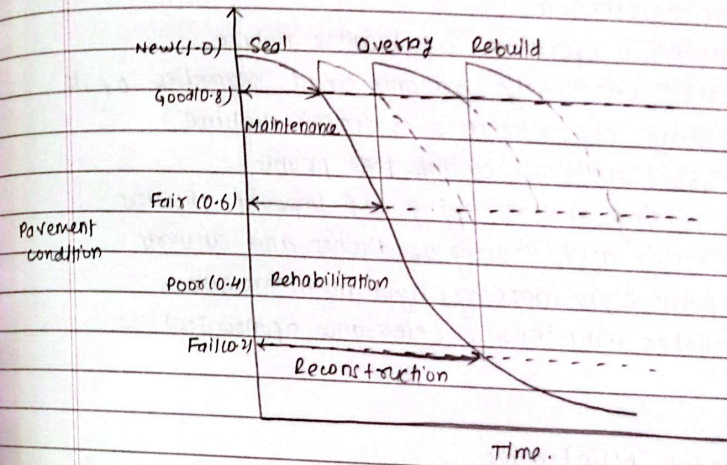 New(1.0) Seal Overlay Rebuild
Good(0.8)
Maintenance
Fair (0.6)
Pavement
condition
Poor(0.4) Rehabilitation
Fail(0.2)
Reconstruction
Time